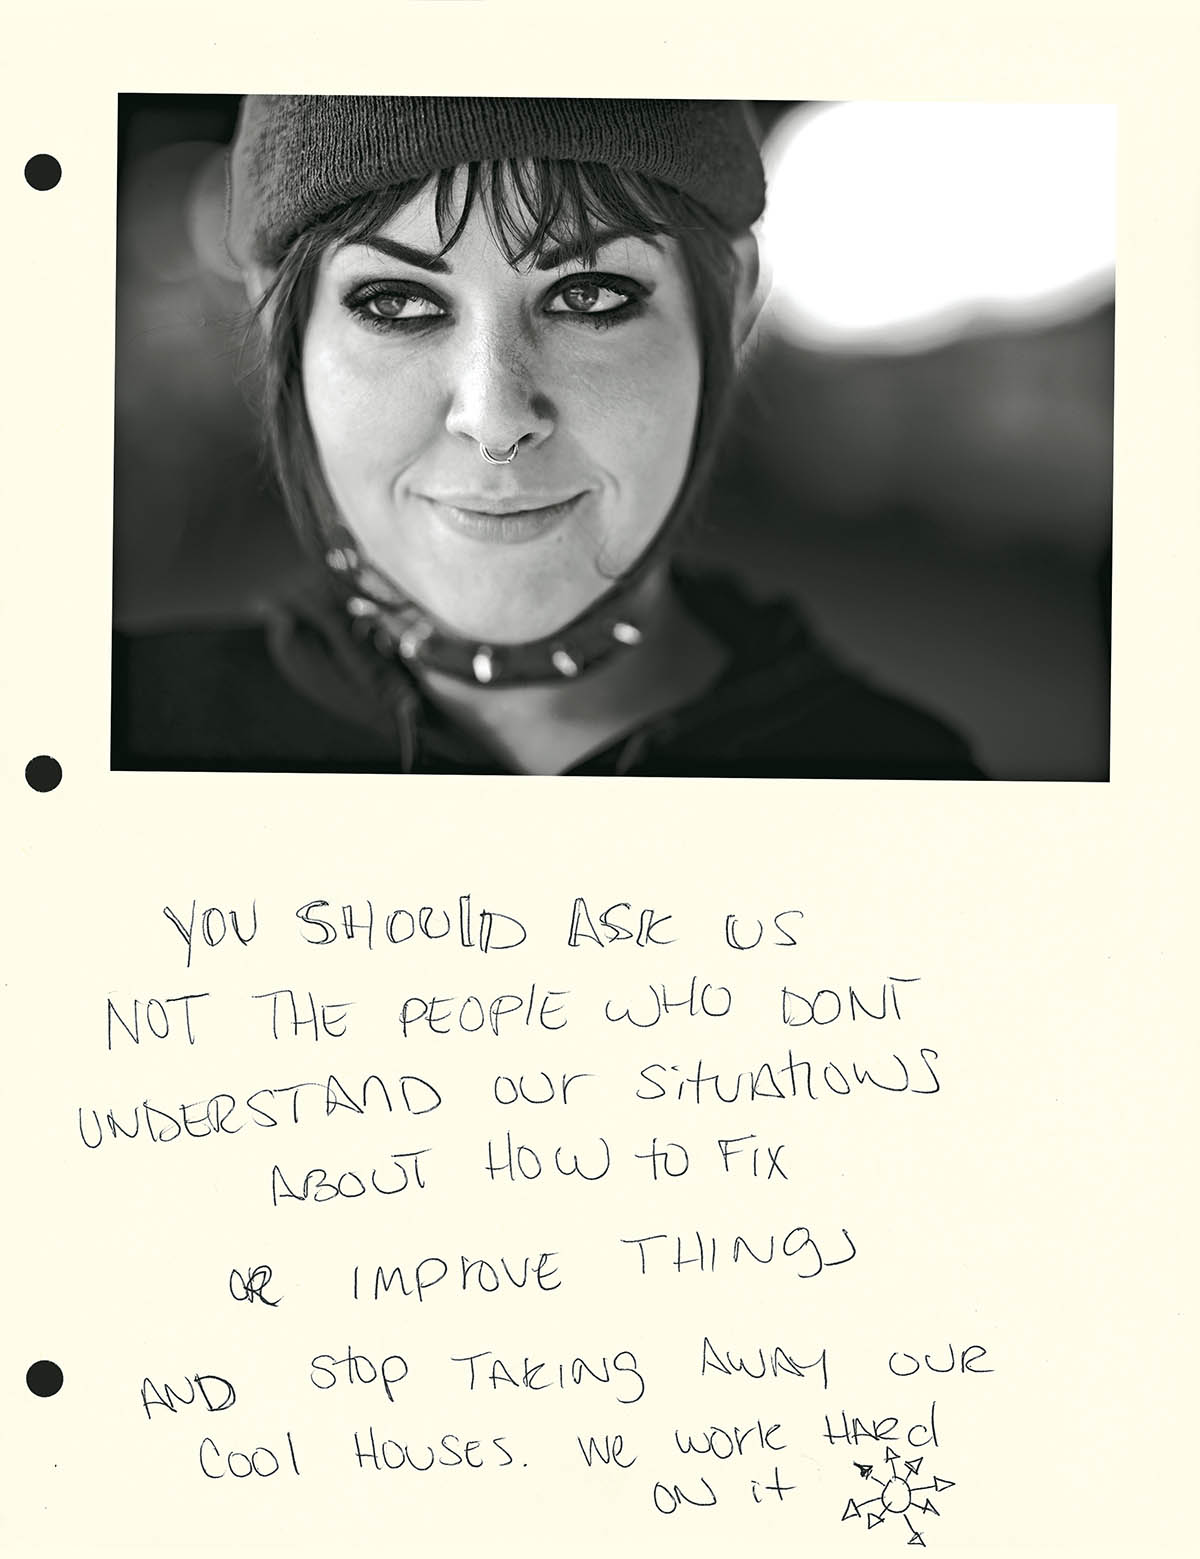 YOU SHOULD ASK US
NOT THE PEOPlE WHO DONT
UNDERSTAND our SituAtioNS
ABOUT HOW to FIX
OR IMPrOVE THINgS
AND Stop TAKINg AWAY OUR
COOl HOUSES. We WOrK HARd
ON it